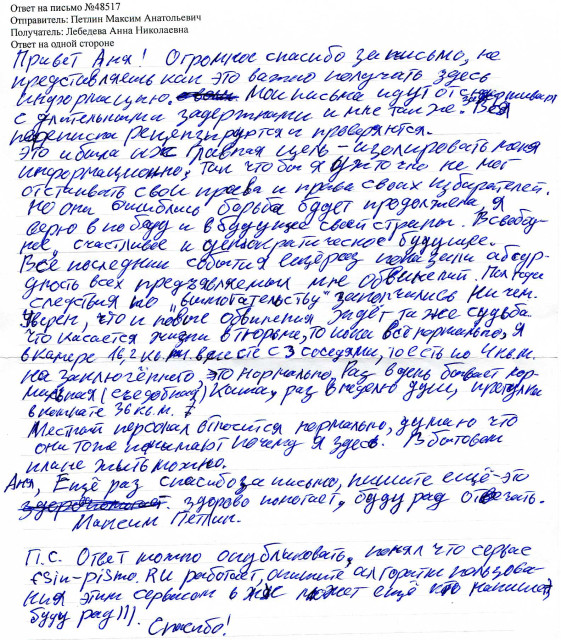 Ответ на письмо №48517
Отправитель: Петлин Максим Анатольевич
Получатель: Лебедева Анна Николаевна
Ответ на одной стороне
Привет Аня! Огромное спасибо за письмо, не
представляешь как это важно получать здесь
информацию. Мои письма идут отсюда
с длительными задержками и мне так же. Вся
переписка рецензируются и проверяются.
Это и была их главная цель – изолировать меня
информационно, так чтобы я уж точно не мог
отстаивать свои права и права своих избирателей.
Но они ошиблись борьба будет продолжена, я
верю в победу и в будущее своей страны. В свобод-
ное, счастливое и демократическое будущее.
Все последнии события ещё раз показали абсур-
дность всех предъявляемых мне обвинений. Пол года
следствия по "вымогательству" закончились ни чем.
Уверен, что и новые обвинения ждёт та же судьба.
Что касается жизни в тюрьме, то пока всё нормально, я
в камере 16,2 кв.м. вместе с 3 соседями, то есть по 4 кв.м.
на заключённого, это нормально. Раз в день бывает нор-
мальная (съедобная) каша, раз в неделю душ, прогулка
в комнате 36 кв.м.
Местный персонал относится нормально, думаю что
они тоже понимают почему я здесь. В бытовом
плане жить можно.
Аня, Ещё раз спасибо за письмо, пишите ещё – это
здорово помогает, буду рад отвечать.
Максим Петлин.
П.С. Ответ можно опубликовать, понял что сервис
fsin-pismo.RU работает, опишите алгоритм пользова-
ния этим сервисом в ЖЖ может ещё кто напишет,
буду рад))).
Спасибо!